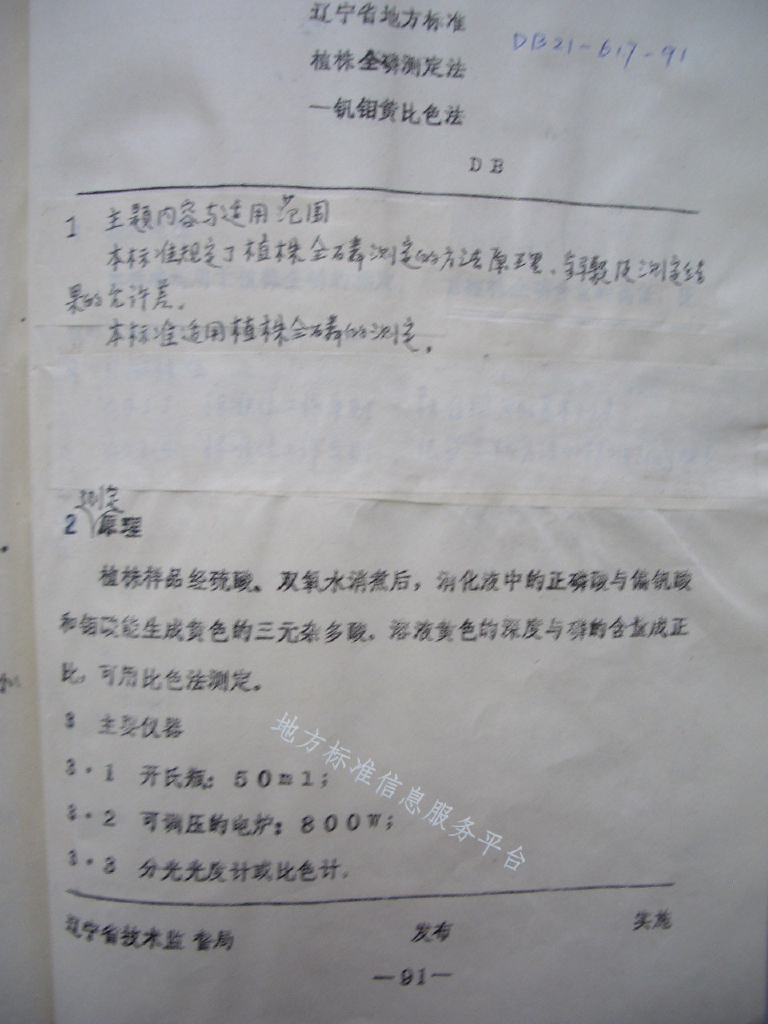 辽宁省地方标准
DB21-617-91
植株全磷测定法
—钒钼黄比色法
DB
1 主题内容与适用范围
本标准规定了植株全磷测定的方法原理、步骤及测定结
果的允许差。
本标准适用植株全磷的测定。
测定
2 原理
植株样品经硫酸、双氧水消煮后,消化液中的正磷酸与偏钒酸
和钼酸能生成黄色的三元杂多酸。溶液黄色的深度与磷的含量成正
比,可用比色法测定。
3 主要仪器
3·1 开氏瓶:50ml;
3·2 可调压的电炉:800W;
3·3 分光光度计或比色计。
地方标准信息服务平台
辽宁省技术监督局 发布 实施
—91—